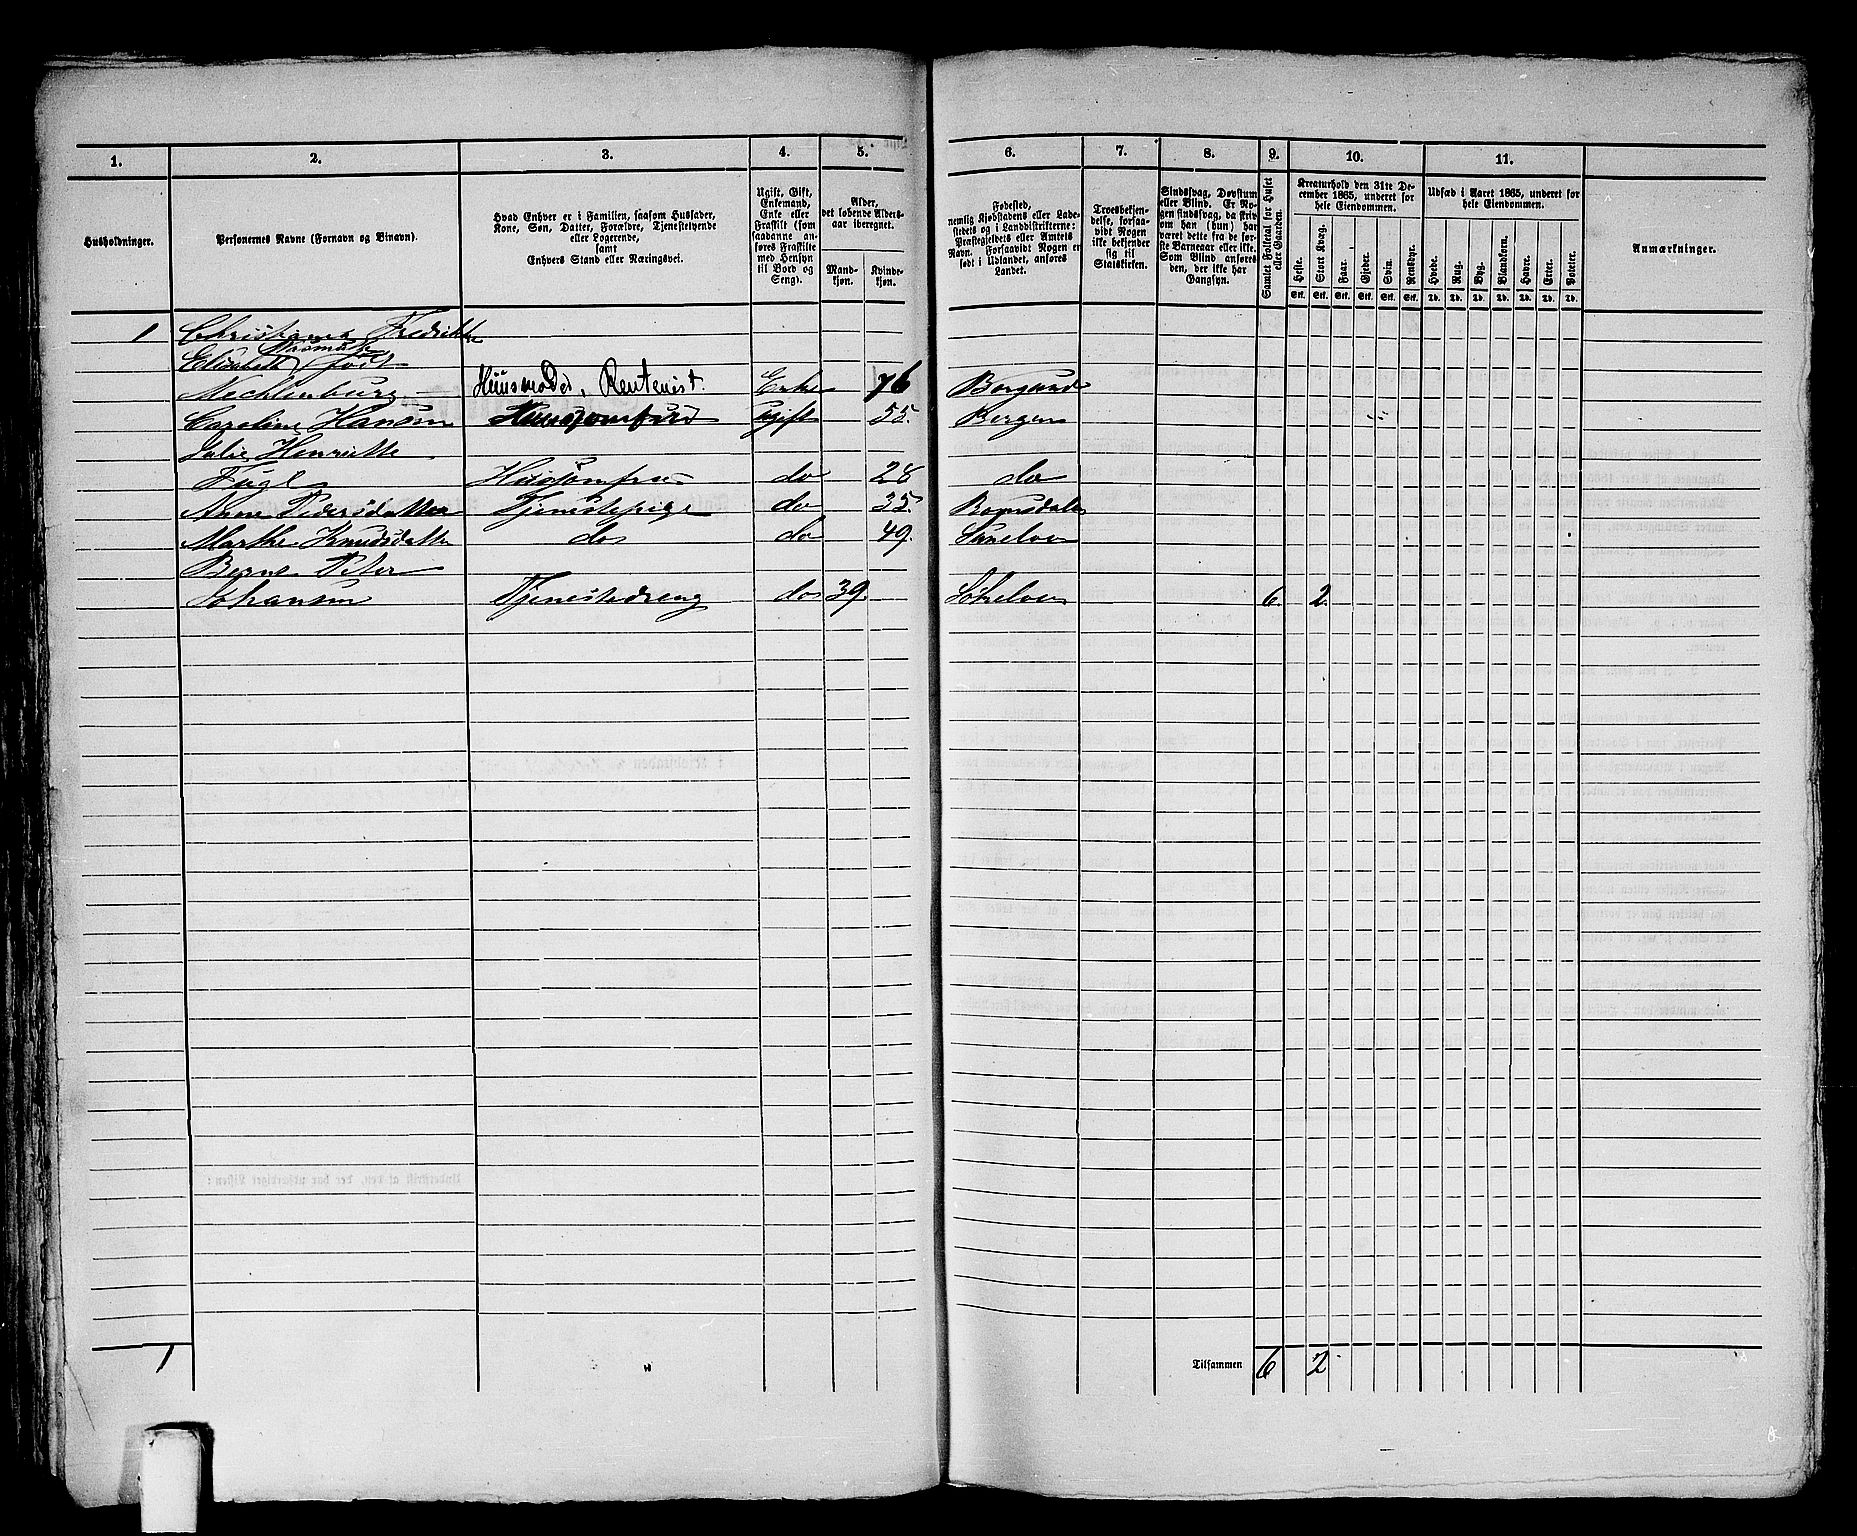 1. 2. 3. 4. 5. 6. 7. 8. 9. 10. 11.
Husholdninger.
Personernes Navne (Fornavn og Binavn).
Hvad Enhver er i Familien, saasom Husfader,
Kone, Søn, Datter, Forældre, Tjenestetyende
eller Logerende,
samt
Enhvers Stand eller Næringsvei.
Ugift, Gift,
Enkemand,
Enke eller
Fraskilt (som
saadanne an-
føres Fraskilte
med Hensyn
til Bord og
Seng).
Alder,
det løbende Alders-
aar iberegnet.
Mand-
kjøn.
Kvinde-
kjøn.
Fødested,
nemlig Kjøbstadens eller Lade-
stedets og i Landdistrikterne:
Præstegjeldets eller Amtets
Navn. Forsaavidt Nogen er
født i Udlandet, anføres
Landet.
Troesbekjen-
delse, forsaa-
vidt Nogen
ikke bekjender
sig til
Statskirken.
Sindssvag, Døvstum
eller Blind. Er No-
gen sindssvag, da skriv
om han (hun) har
været dette fra de før-
ste Barneaar eller ikke.
Som Blind anføres
den, der ikke har
Gangsyn.
Samlet Folketal for Huset
eller Gaarden.
Kreaturhold den 31te De-
cember 1865, underet for
hele Eiendommen.
Heste. Stort Kvæg. Faar. Gjeder. Svin. Rensdyr.
Stk. Stk. Stk. Stk. Stk. Stk.
Udsæd i Aaret 1865, underet for
hele Eiendommen.
Hvede. Rug. Byg. Blandkorn. Havre. Erter. Poteter.
Td. Td. Td. Td. Td. Td. Td.
Anmærkninger.
1 Christiane Fredrikke
Elisabeth født
Mechlenburg Huusmoder, Rentenist. Enke 76 Borgund
Caroline Hansen ugift 55. Bergen
Julie Henriette
Fugl Husjomfru do 28 do
Anne Pedersdatter Tjenestepige do 35. Romsdalen
Marthe Knudsdatter do do 49. Sunelven
Bernt Peter
Johansen Tjenestedreng do 39. 6. 2.
1 Tilsammen 6 2